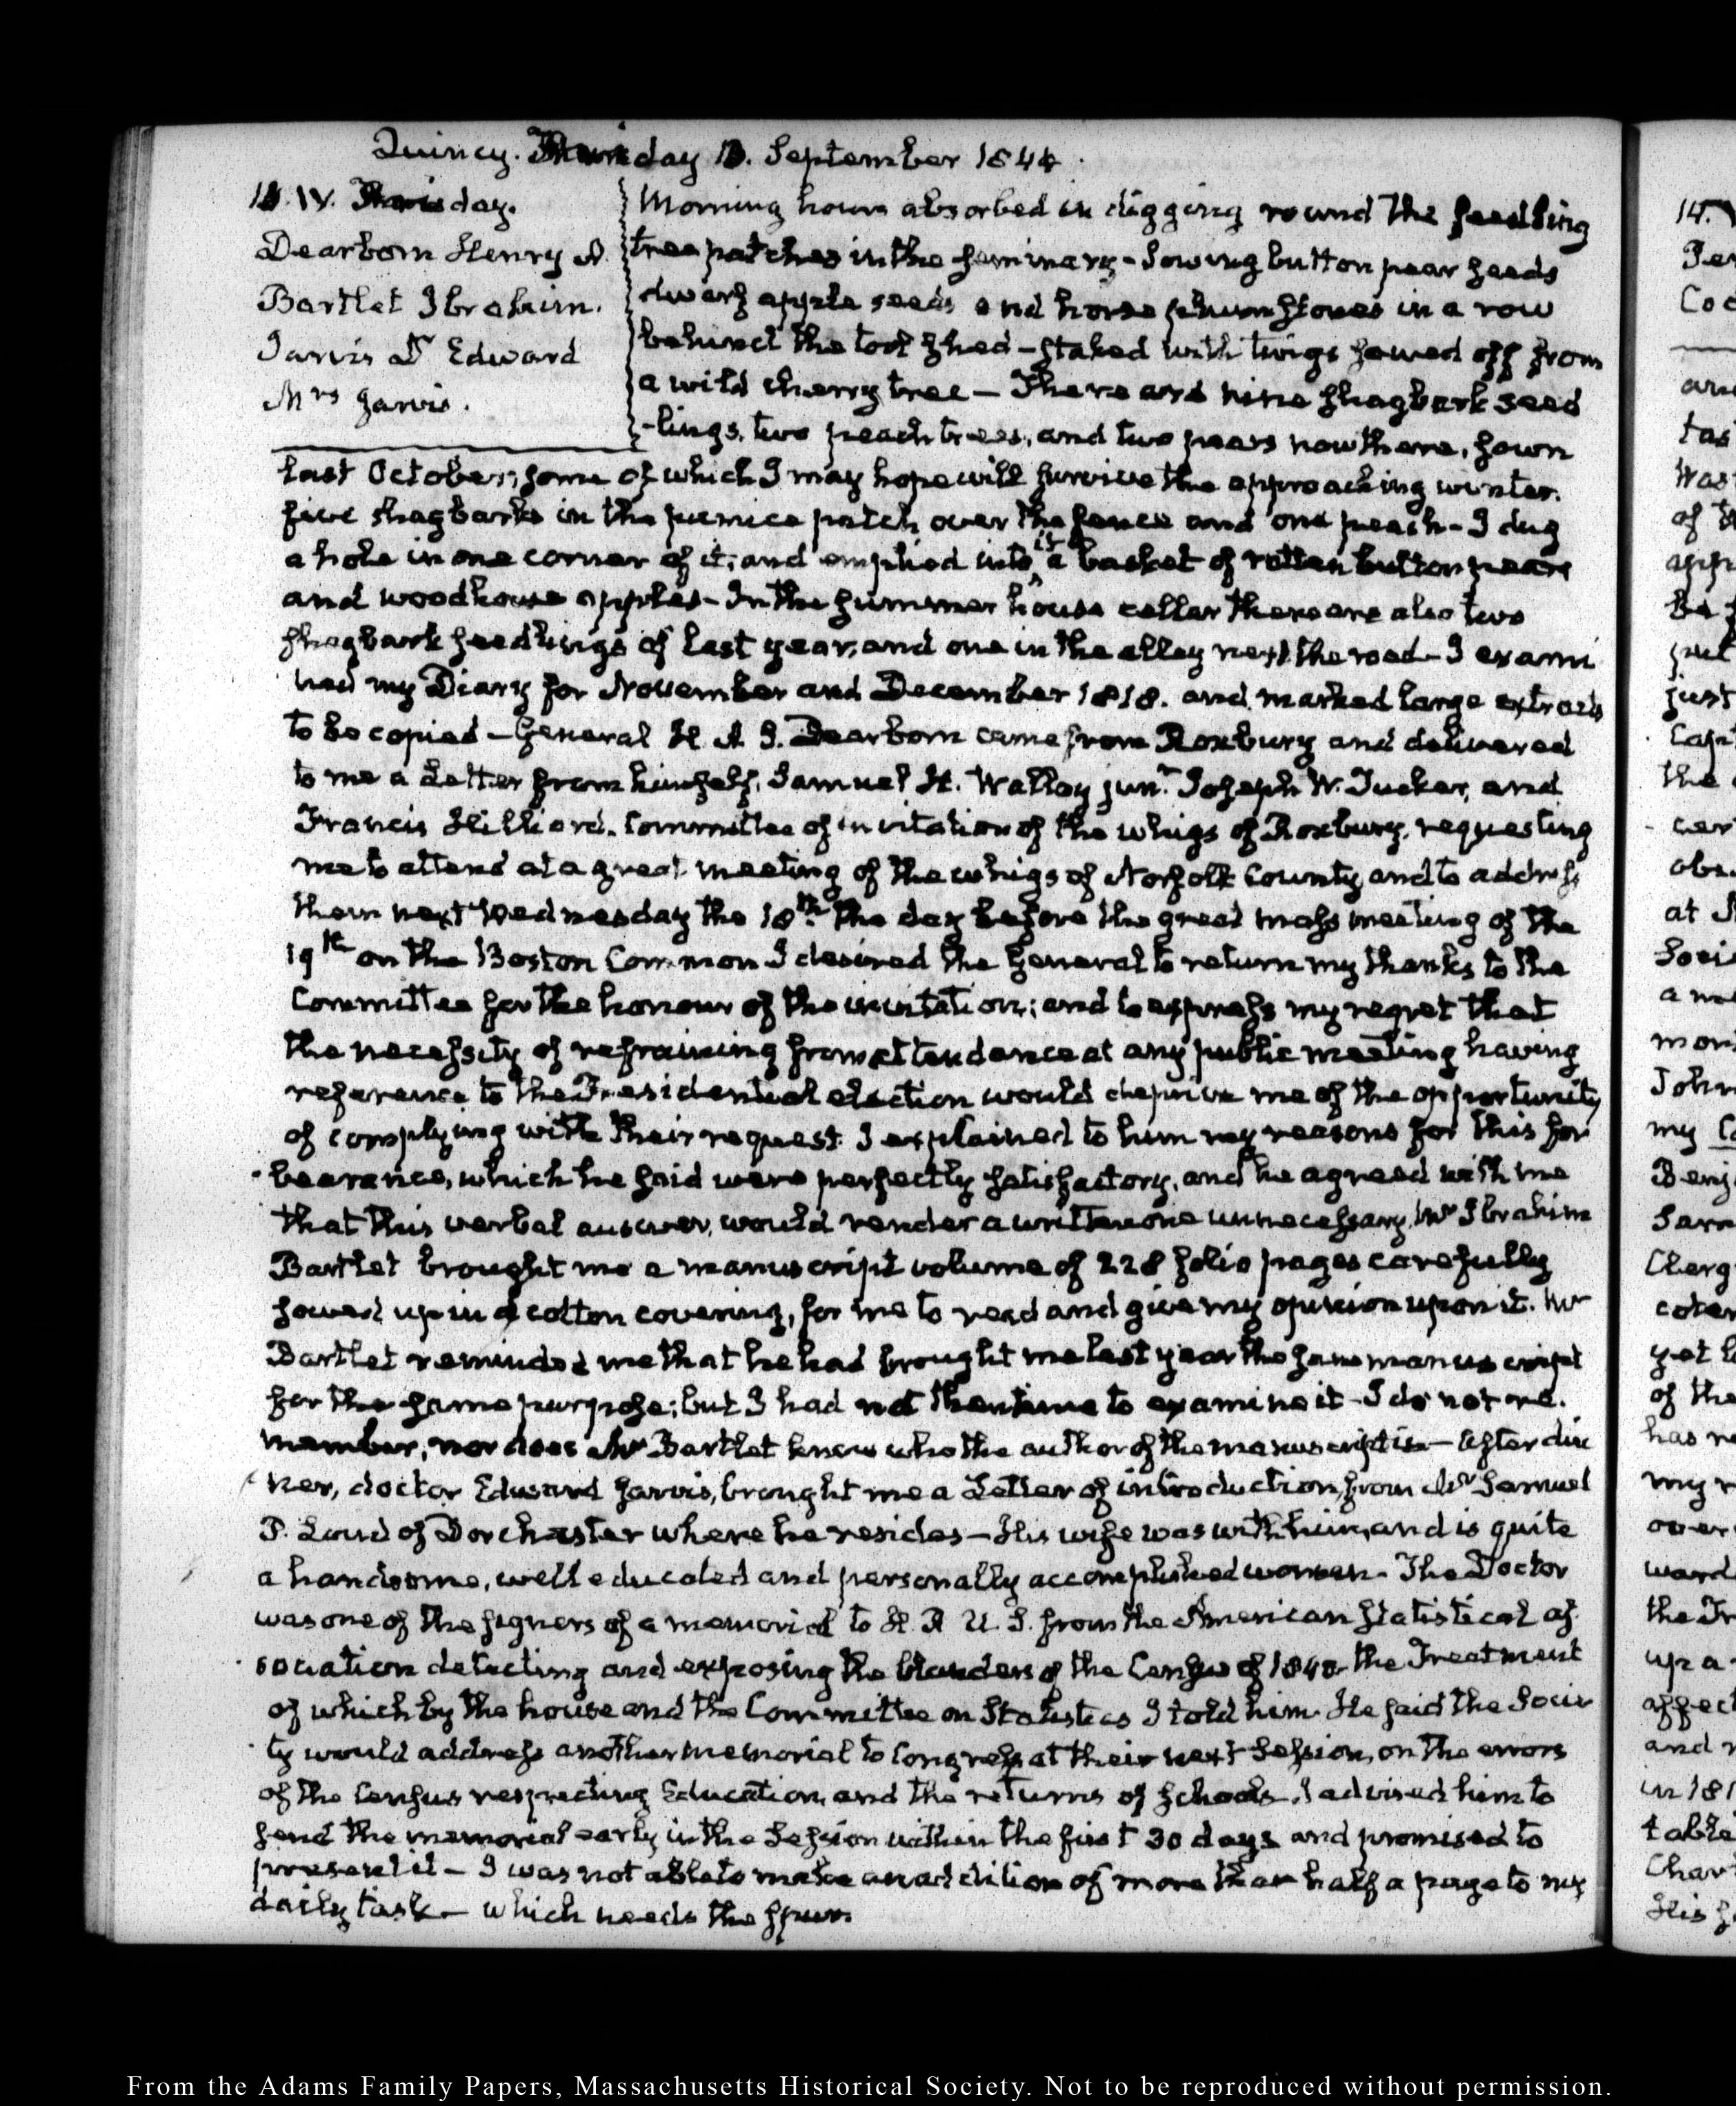 Quincy. Thursday 12. September 1844.
12. IV. Thursday.
Dearborn Henry A.
Bartlet Ibrahim.
Jarvis Dr Edward
Mrs Jarvis.
Morning hours absorbed in digging round the seedling
tree patches in the seminary - Sowing button pear seeds
dwarf apple seeds and horse plum stones in a row
behind the tool shed - staked with twigs sawed off from
a wild cherry tree - There are nine shagbark seed
-lings, two peach trees, and two pears now there, sown
last October; some of which I may hope will survive the approaching winter.
five shagbarks in the pumice patch over the fence and one peach - I dug
a hole in one corner of it, and emptied into it a basket of rotten button pears
and woodhouse apples - In the summer house cellar there are also two
shagbark seedlings of last year, and one in the alley next the road - I exami
ned my Diary for November and December 1818. and marked large extracts
to be copied - General H. A. S. Dearborn came from Roxbury and delivered
to me a Letter from himself, Samuel H. Walley junr. Joseph W. Tucker, and
Francis Hilliard, Committee of invitation of the whigs of Roxbury, requesting
me to attend at a great meeting of the whigs of Norfolk County and to address
them next Wednesday the 18th. the day before the great mass meeting of the
19th on the Boston Common I desired the General to return my thanks to the
Committee for the honour of the invitation; and to express my regret that
the necessity of refraining from attendance at any public meeting having
reference to the Presidential election would deprive me of the opportunity
of complying with their request. I explained to him my reasons for this for
bearance, which he said were perfectly satisfactory, and he agreed with me
that this verbal answer, would render a written one unnecessary. Mr Ibrahim
Bartlet brought me a manuscript volume of 228 folio pages carefully
sowed up in a cotton covering, for me to read and give my opinion upon it. Mr
Bartlet reminded me that he had brought me last year the same manuscript
for the same purpose; but I had not then time to examine it - I do not re.
member, nor does Mr Bartlet know who the author of the manuscript is - After din
ner, doctor Edward Jarvis, brought me a Letter of introduction, from Mr Samuel
P. Loud of Dorchester where he resides - His wife was with him, and is quite
a handsome, well educated and personally accomplished woman - The Doctor
was one of the signers of a memorial to H. R. U. S. from the American Statistical as
sociation detecting and exposing the blunders of the Census of 1840. the Treatment
of which by the house and the Committee on Statistics I told him. He said the Socie
ty would address another memorial to Congress at their next Session, on the errors
of the Census respecting Education, and the returns of schools. I advised him to
send the memorial early in the Session within the first 30 days and promised to
present it - I was not able to make an addition of more than half a page to my
daily task - which needs the spur.
From the Adams Family Papers, Massachusetts Historical Society. Not to be reproduced without permission.